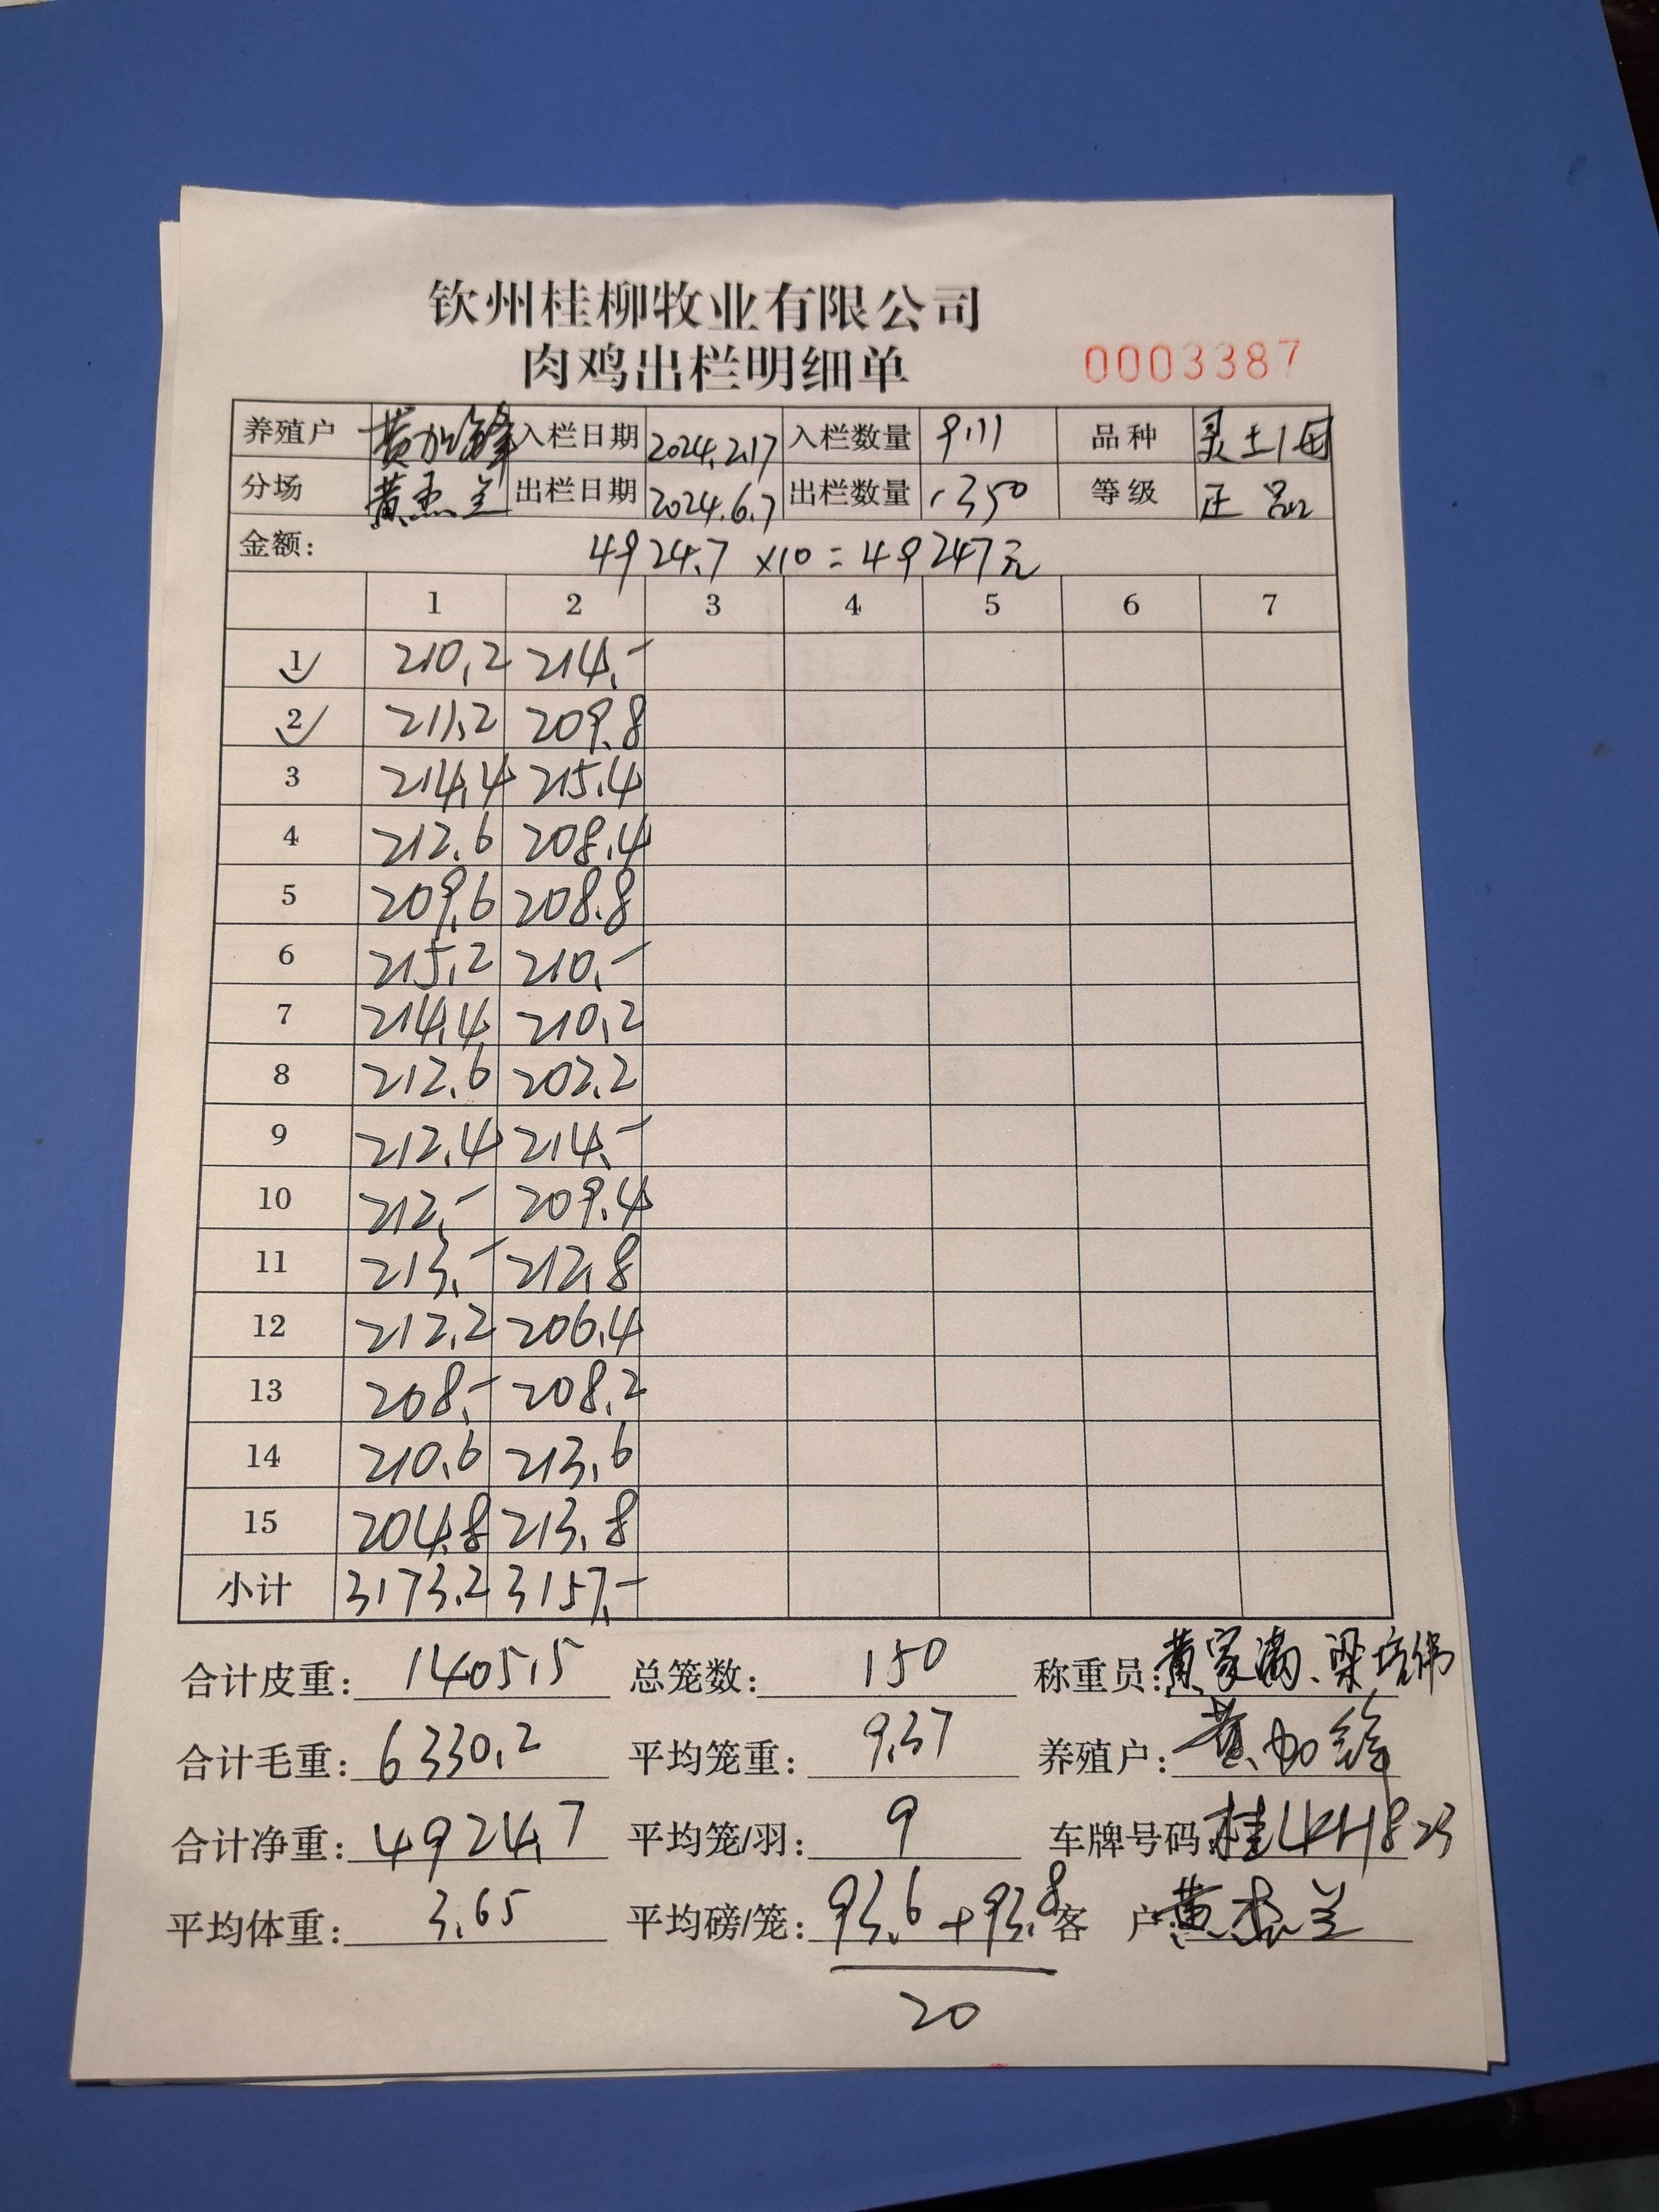 钦州桂柳牧业有限公司
肉鸡出栏明细单 0003387
养殖户 黄加锋 入栏日期 2024.2.17 入栏数量 9111 品种 灵土1号
分场 黄杰兰 出栏日期 2024.6.7 出栏数量 1350 等级 正品
金额: 4924.7 ×10 = 49247元
1 2 3 4 5 6 7
1 210.2 214.-
2 211.2 209.8
3 214.4 215.4
4 212.6 208.4
5 209.6 208.8
6 215.2 210.-
7 214.4 210.2
8 212.6 202.2
9 212.4 214.-
10 212.- 209.4
11 213.- 212.8
12 212.2 206.4
13 208.- 208.2
14 210.6 213.6
15 204.8 213.8
小计 3173.2 3157.-
合计皮重: 1405.5 总笼数: 150 称重员: 黄家满、梁培伟
合计毛重: 6330.2 平均笼重: 9.37 养殖户: 黄加锋
合计净重: 4924.7 平均笼/羽: 9 车牌号码: 桂
平均体重: 3.65 平均磅/笼: 93.6+93.8 客 户: 黄杰兰
20